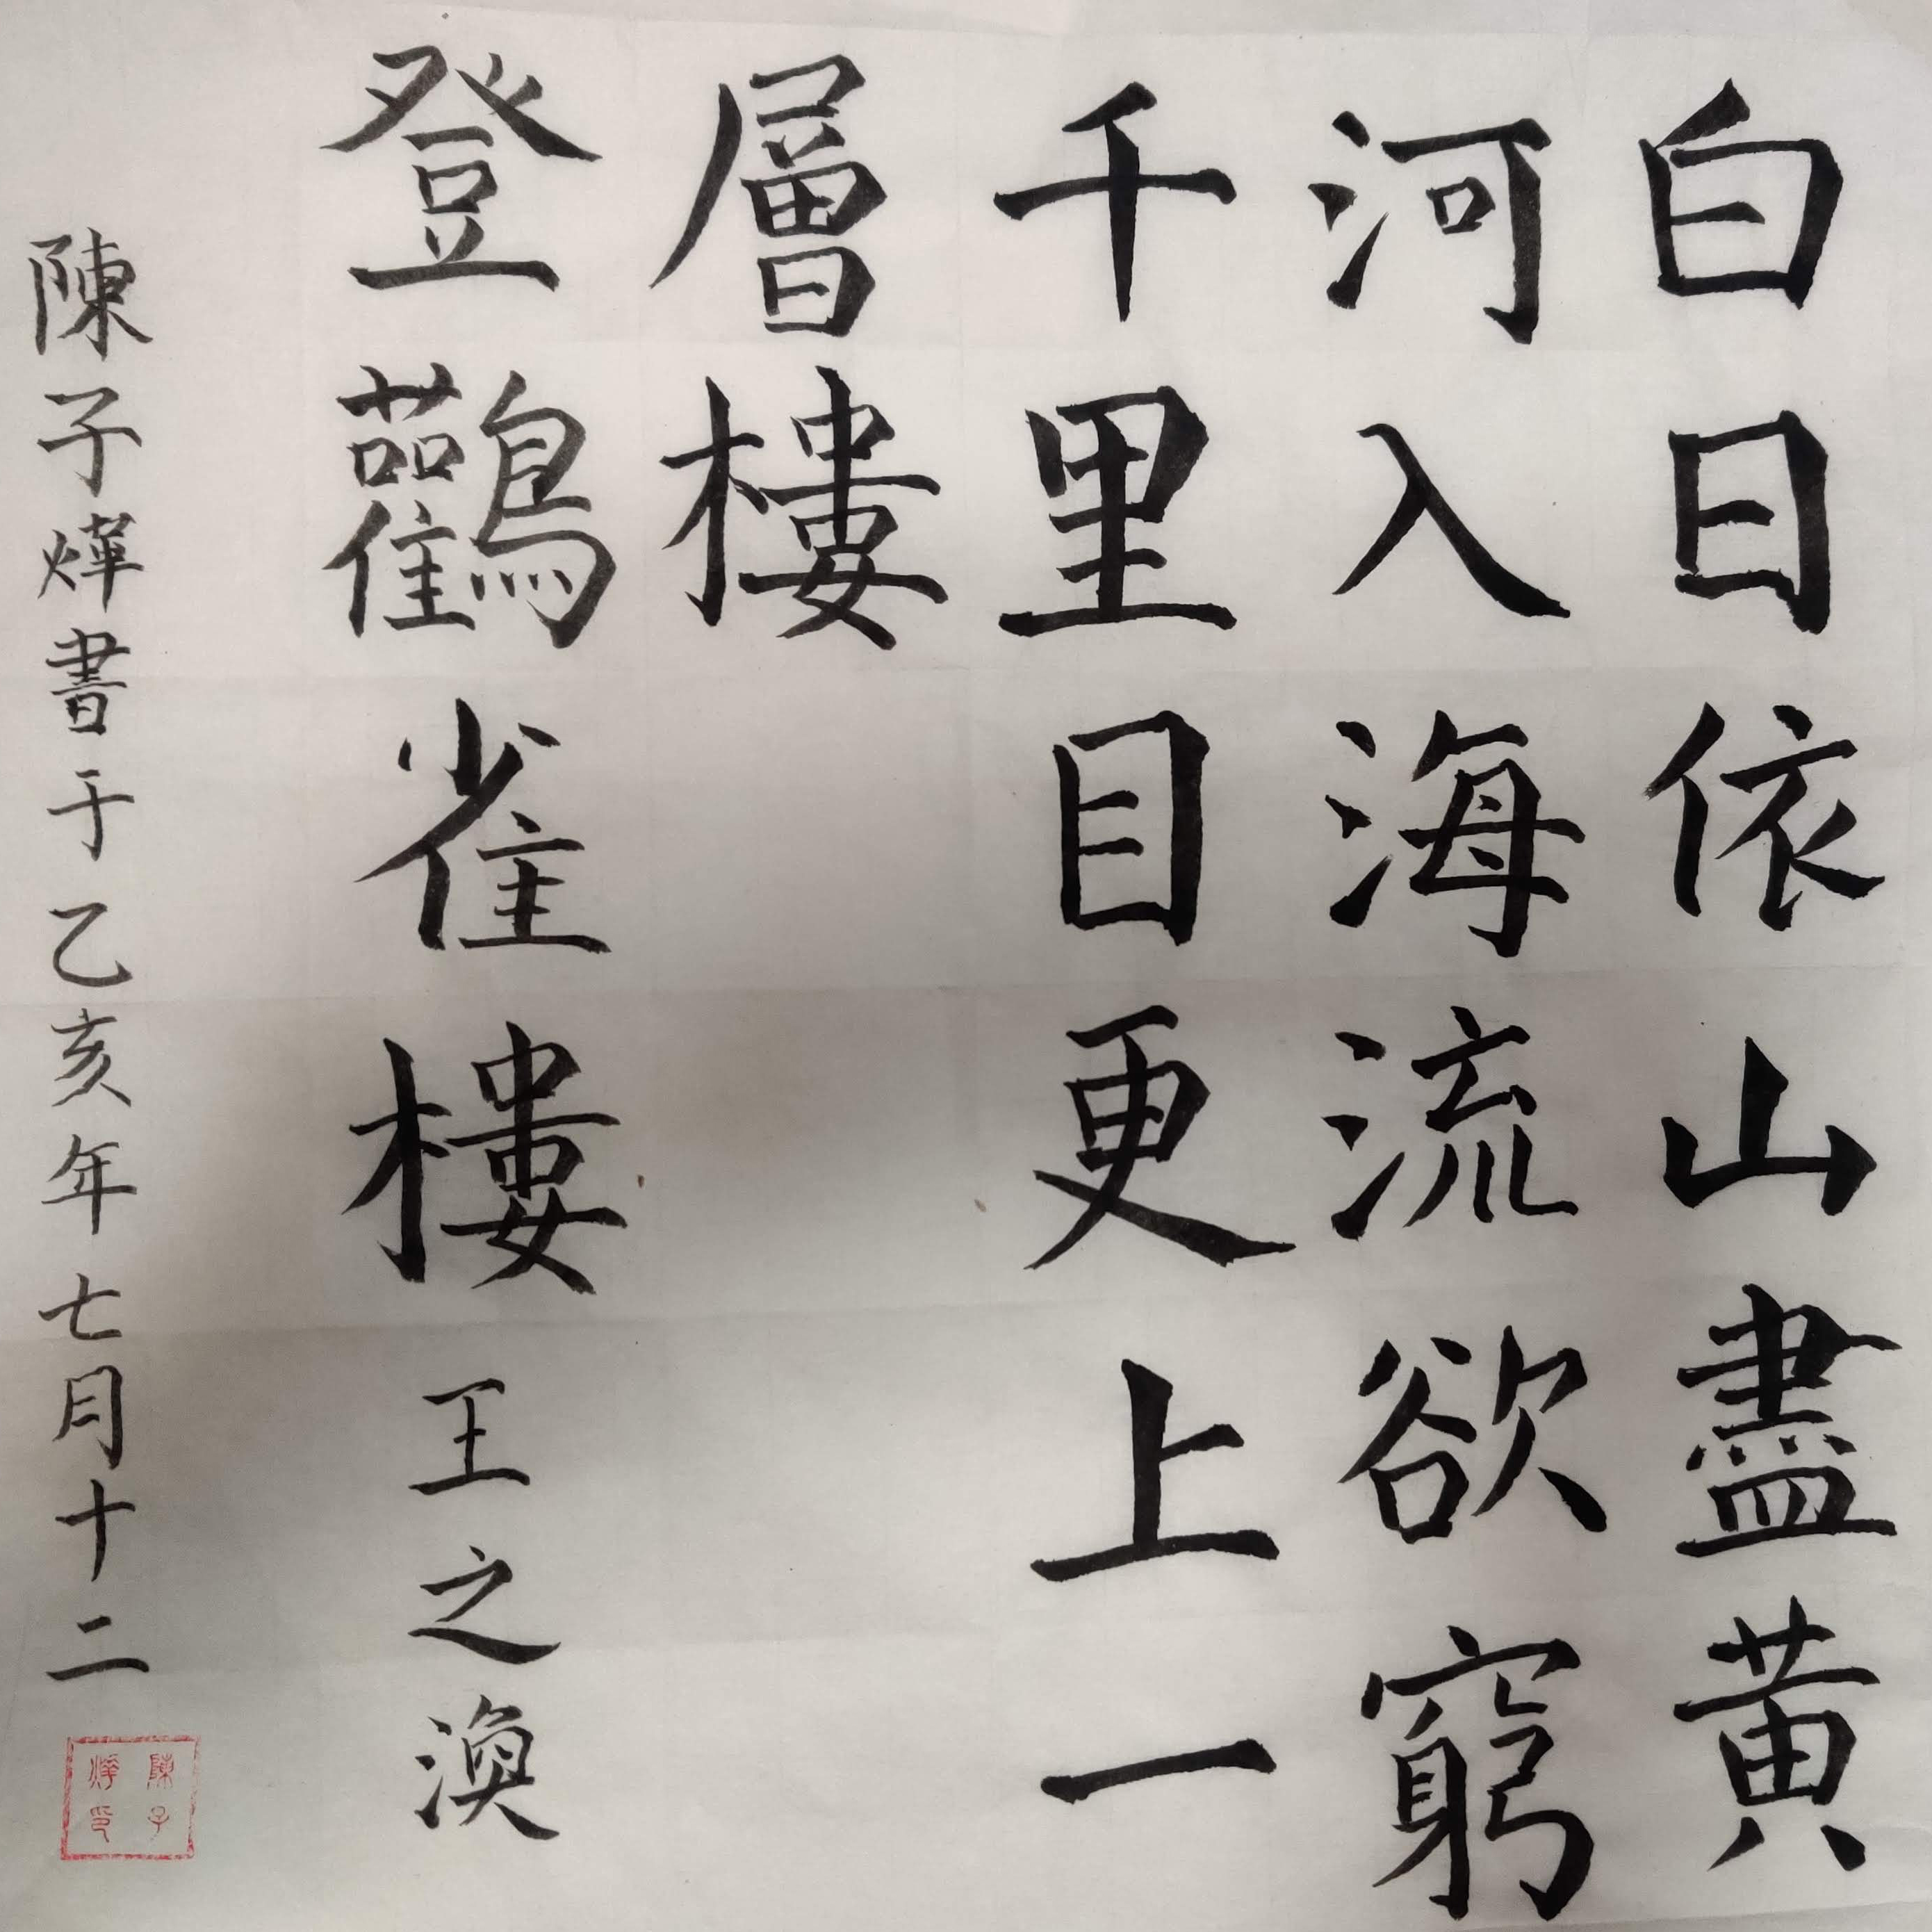 白日依山盡黄
河入海流欲窮
千里目更上一
層樓
登鸛雀樓 王之渙
陳子燁書于乙亥年七月十二
陳子燁印